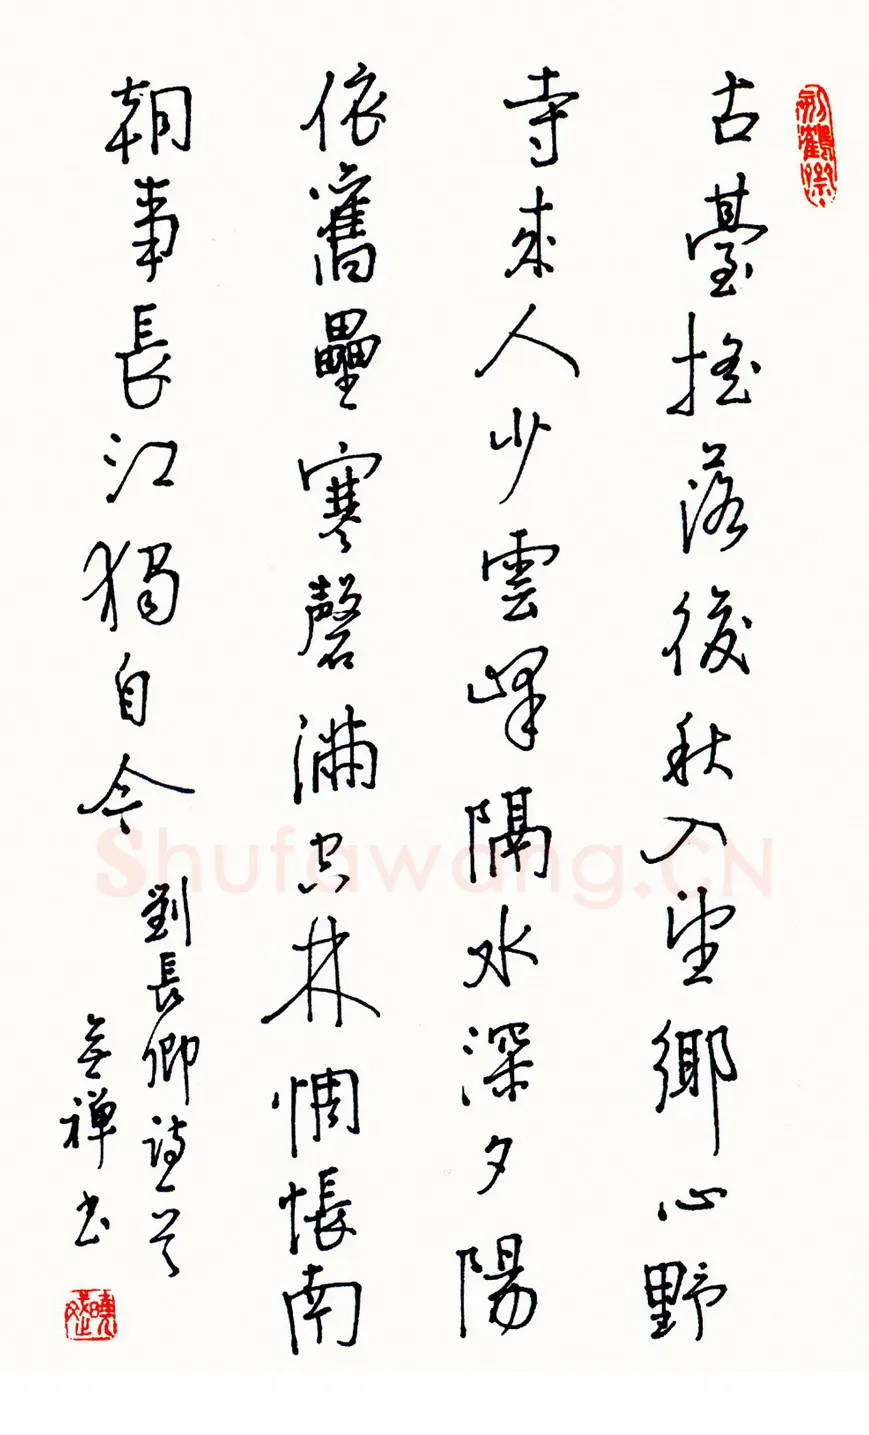 古臺搖落後秋入望鄉心野
寺來人少雲峰隔水深夕陽
依舊壘寒磬滿空林惆悵南
朝事長江獨自今
劉長卿詩一首
禪書
Shufawang.CN